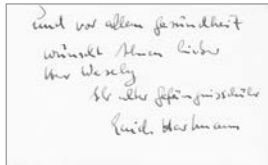 und vor allem Gesundheit
wünscht Ihnen lieber
Herr Wesely
Ihr alter Gefängnisschüler
Erich Hartmann